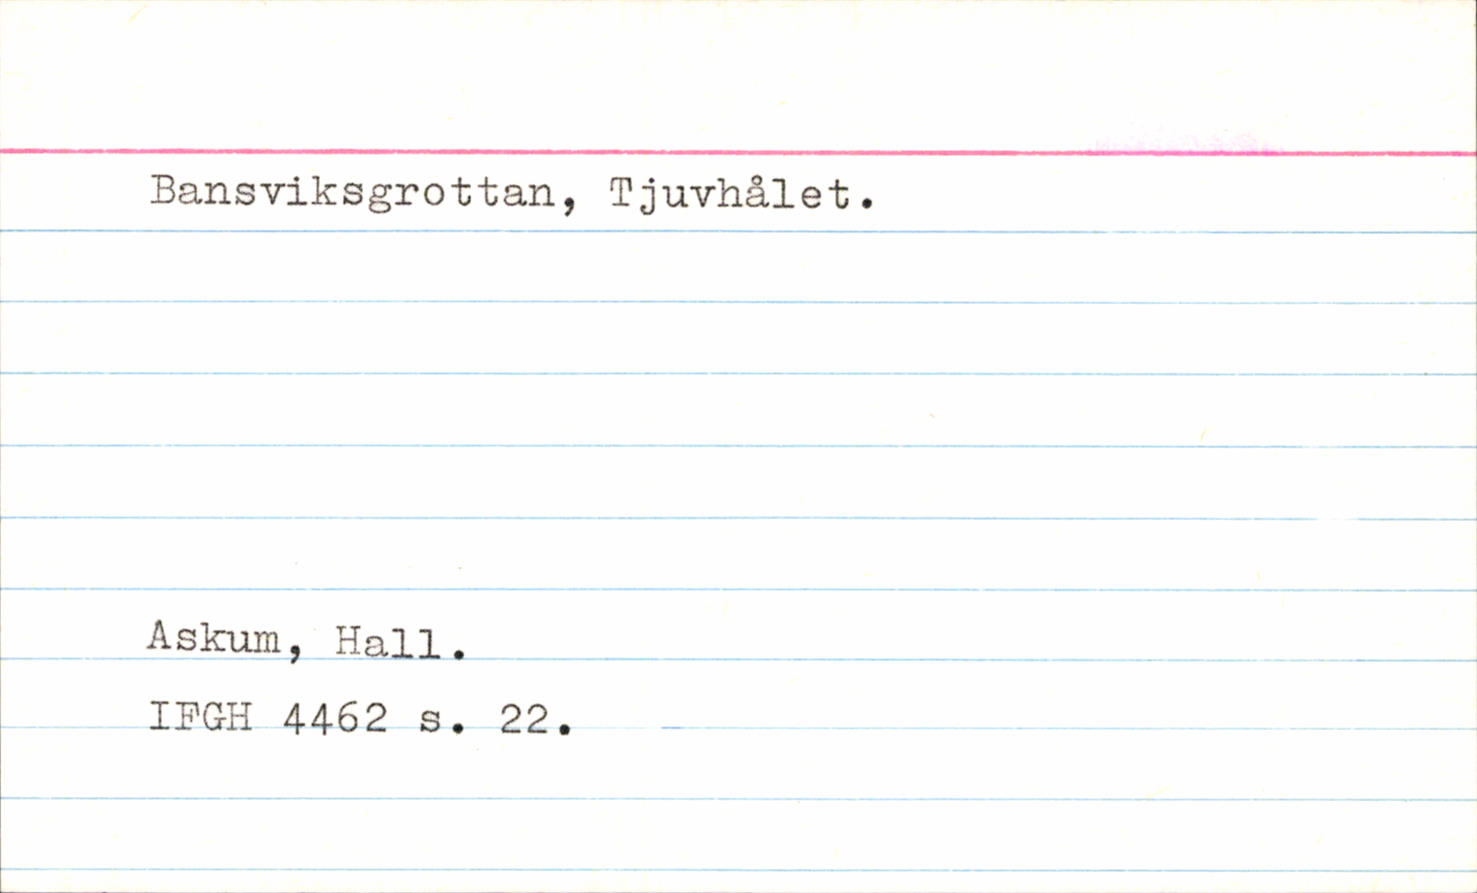 Bansviksgrottan, Tjuvhålet.
Askum, Hall.
IFGH 4462 s. 22.